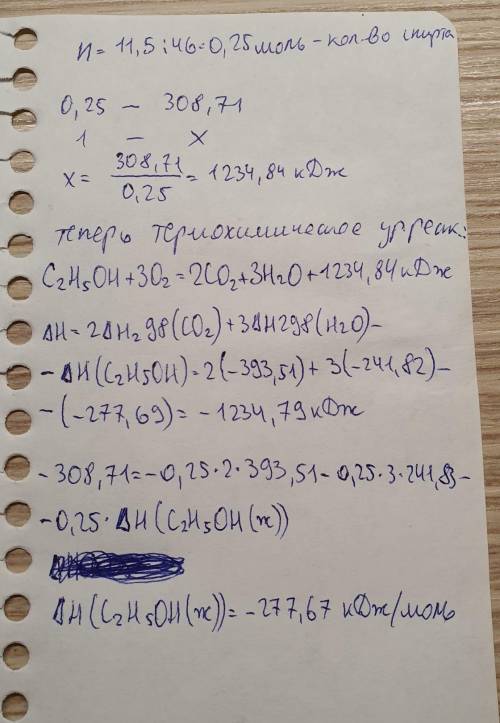 n = 11,5 : 46 = 0,25 моль - кол-во спирта
0,25 — 308,71
1 — x
x = 308,71 / 0,25 = 1234,84 кДж
теперь термохимическое ур реак:
C₂H₅OH + 3O₂ = 2CO₂ + 3H₂O + 1234,84 кДж
ΔH = 2ΔH₂98(CO₂) + 3ΔH298(H₂O) -
- ΔH(C₂H₅OH) = 2(-393,51) + 3(-241,82) -
- (-277,69) = - 1234,79 кДж
- 308,71 = - 0,25·2·393,51 - 0,25·3·241,83 -
- 0,25 · ΔH(C₂H₅OH(ж))
ΔH(C₂H₅OH(ж)) = - 277,67 кДж/моль